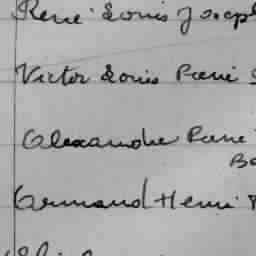 René Louis Joseph
Victor Louis René
Alexandre René
Ba
Armand Henri